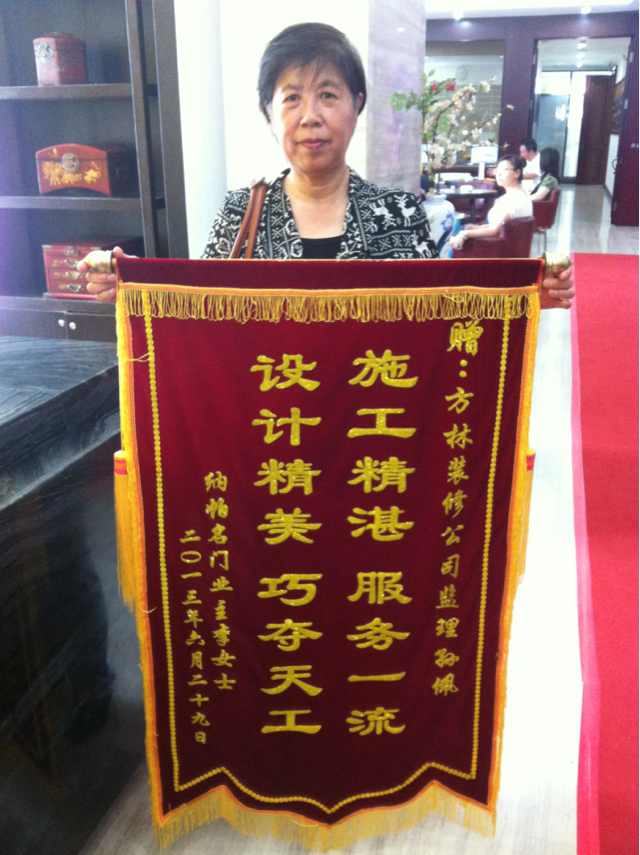 赠：方林装修公司监理孙佩
施工精湛 服务一流
设计精美 巧夺天工
纳帕名门业主李女士
二〇一三年六月二十九日